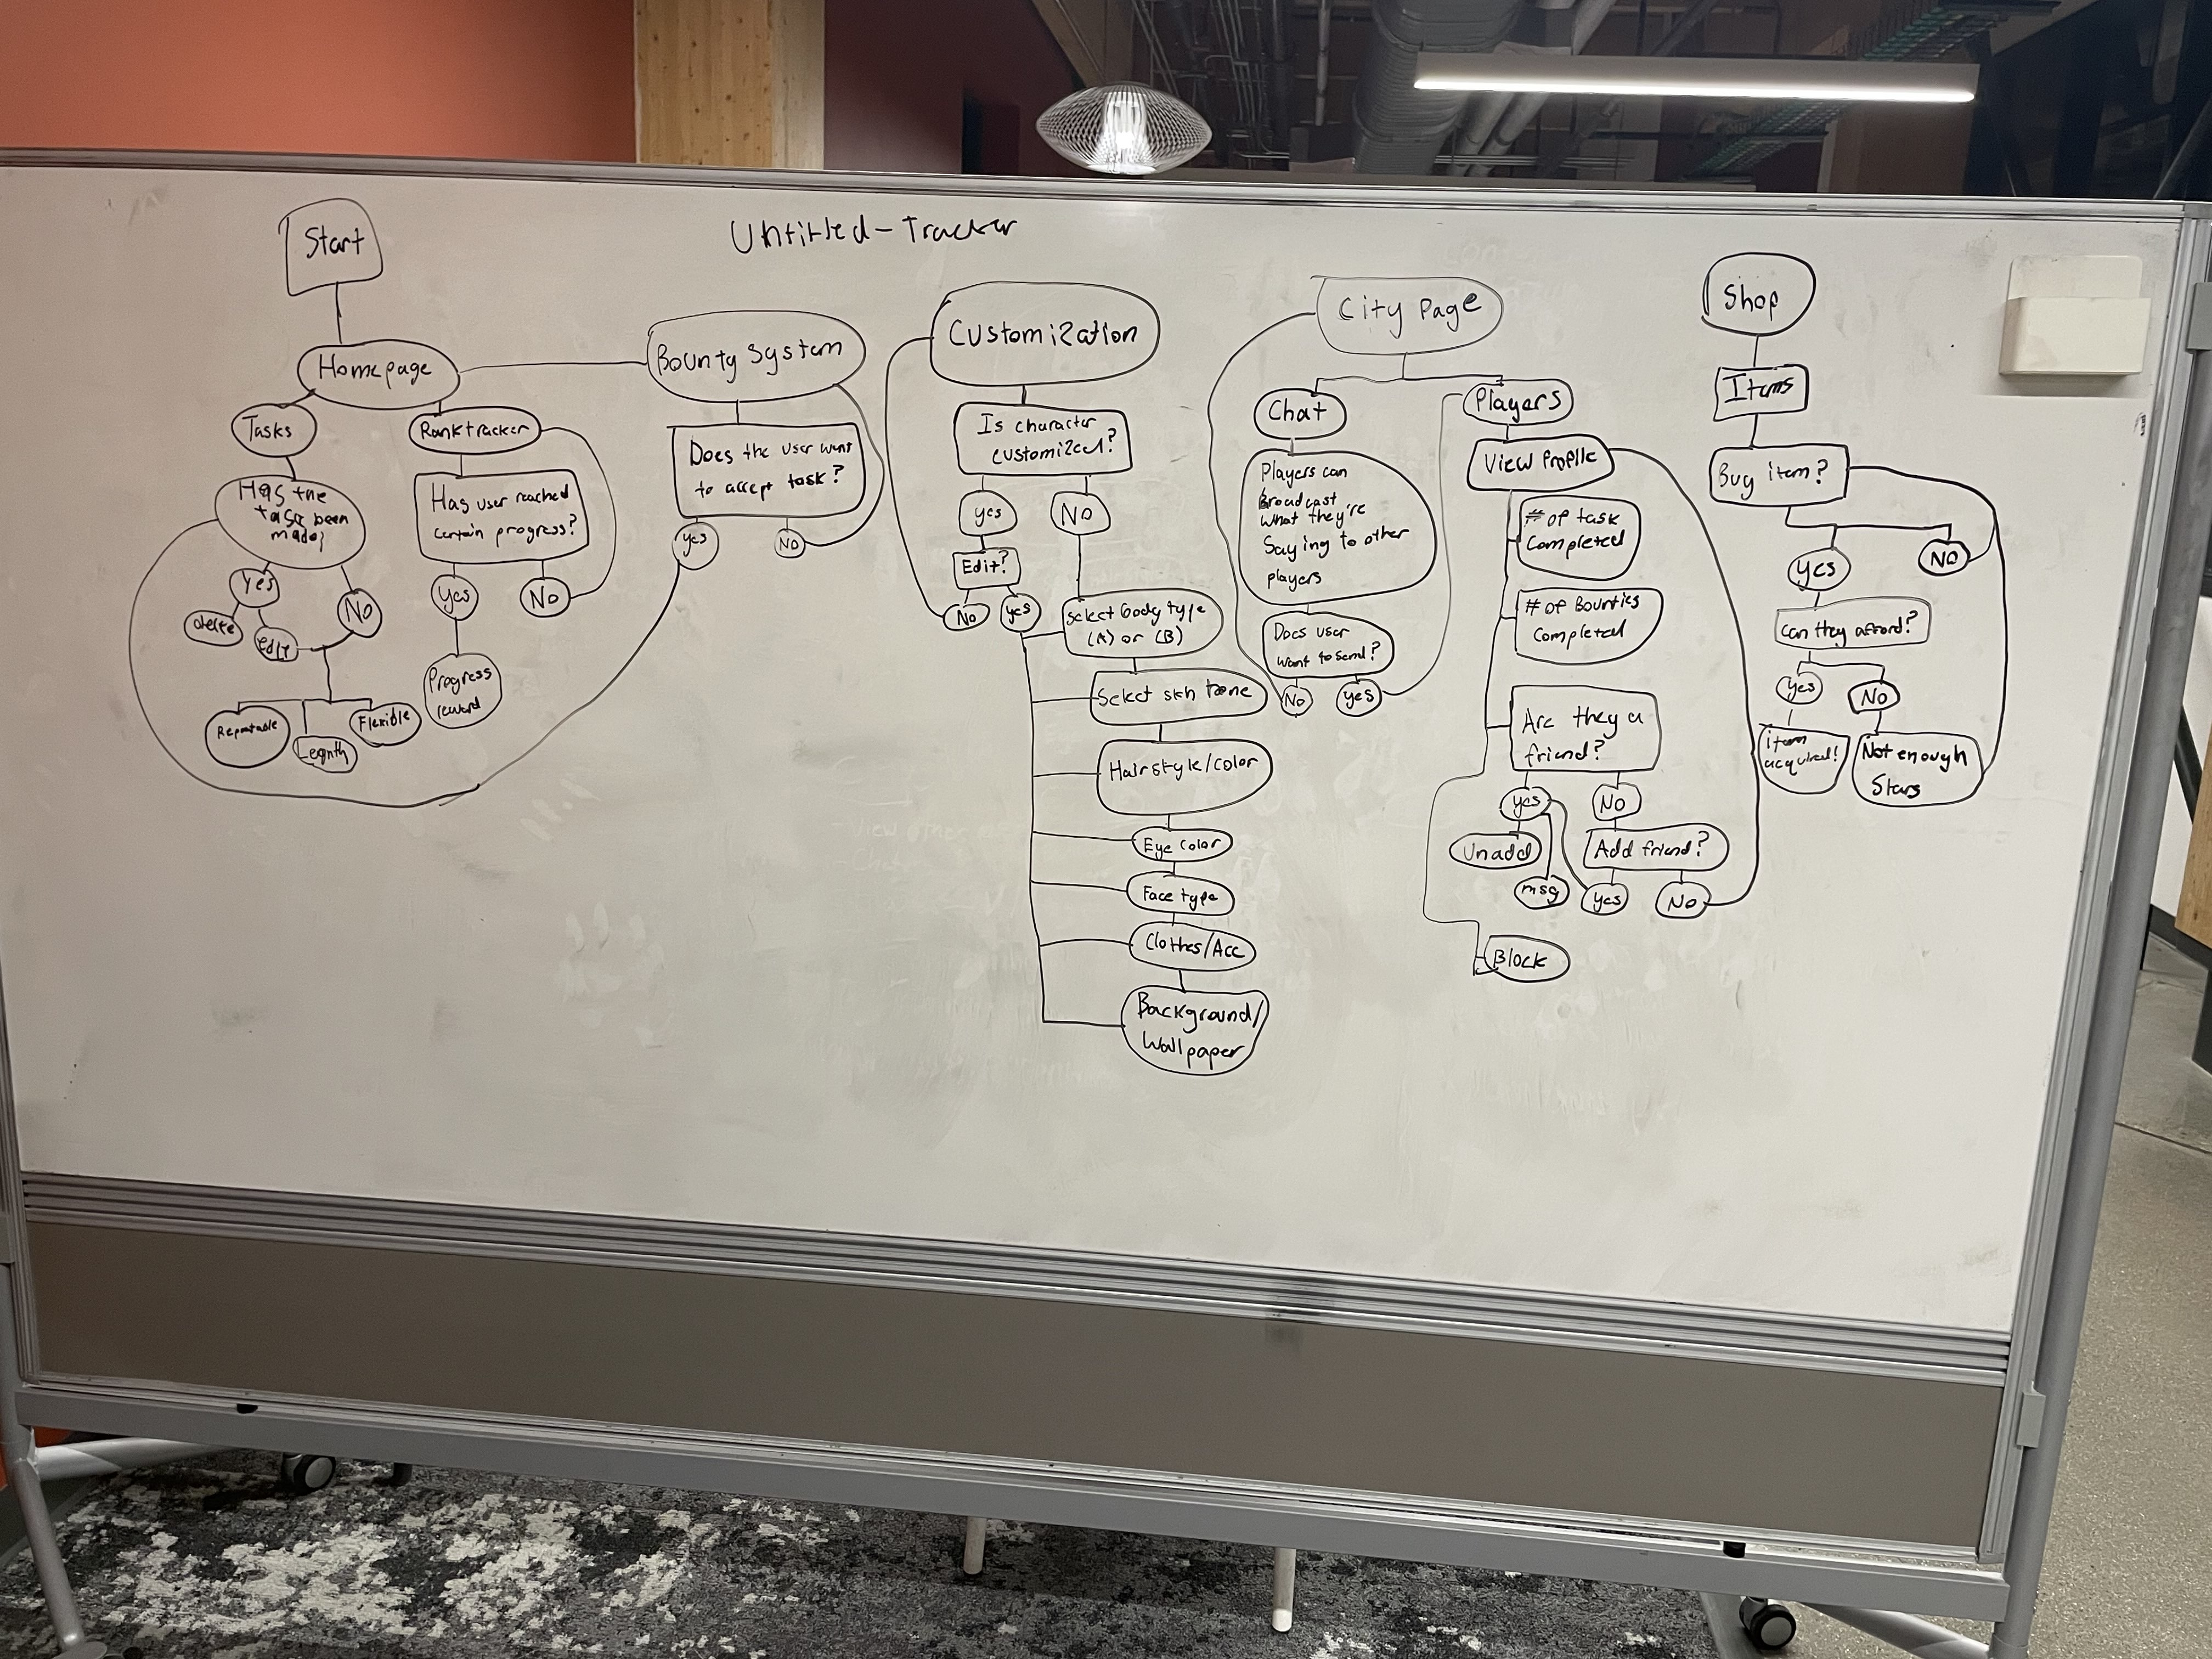 Untitled-Tracker
Start
Homepage
Tasks
Has the
task been
made?
Yes
delete
edit
No
Repeatable
Legnth
Flexible
Ranktracker
Has user reached
certain progress?
Yes
No
Progress
reward
Bounty System
Does the user want
to accept task?
yes
NO
Customization
Is character
customized?
yes
NO
Edit?
No
yes
Select body type
(A) or (B)
Select skn tone
Hairstyle/color
Eye color
Face type
Clothes/Acc
Background/
Wallpaper
City Page
Chat
Players can
Broadcast
what they're
Saying to other
players
Does user
want to send?
No
yes
Players
View Profile
# of task
Completed
# of Bounties
Completed
Are they a
friend?
yes
NO
Unadd
msg
Add friend?
yes
NO
Block
Shop
Items
Buy item?
yes
NO
Can they afford?
yes
No
item
acquired!
Not enough
Stars